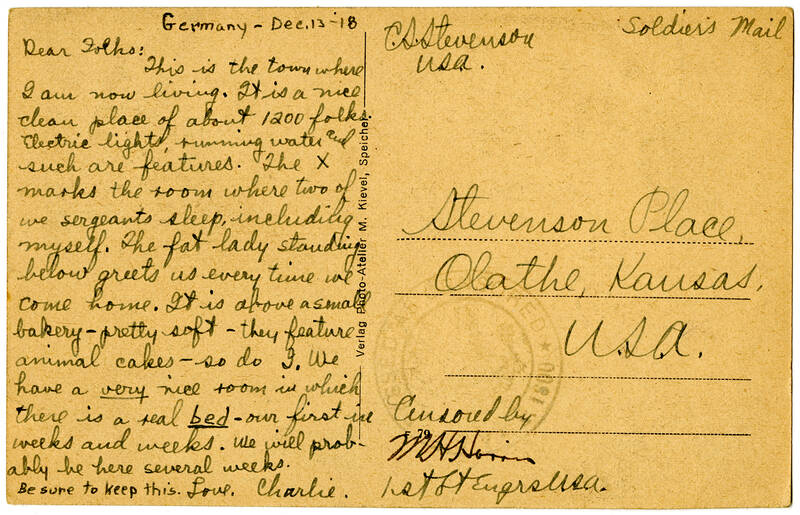 Germany - Dec. 13 - 18
Dear Folks:
This is the town where
I am now living. It is a nice
clean place of about 1200 folks.
Electric lights, running water and
such are features. The X
marks the room where two of
we sergeants sleep, including
myself. The fat lady standing
below greets us every time we
come home. It is above a small
bakery - pretty soft - they feature
animal cakes - so do I. We
have a very nice room in which
there is a real bed - our first in
weeks and weeks. We will prob-
ably be here several weeks.
Be sure to keep this. Love. Charlie.
Verlag Photo-Atelier M. Kievel, Speicher
C S Stevenson
USA.
Soldier's Mail
Stevenson Place,
Olathe, Kansas,
U.S.A.
Censored by
79
1st Lt Engrs USA.